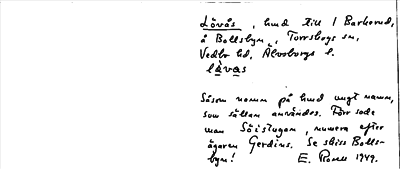 Lövås, hmd till 1 Barkerud,
å Bollsbyn, Torrskogs sn,
Vedbo hd, Älvsborgs l.
låvas
Såsom namn på hmd ungt namn,
som sällan användes. Förr sade
man Sörstugan, numera efter
ägaren Gerdins. Se skiss Bolls-
byn! E. 1949.